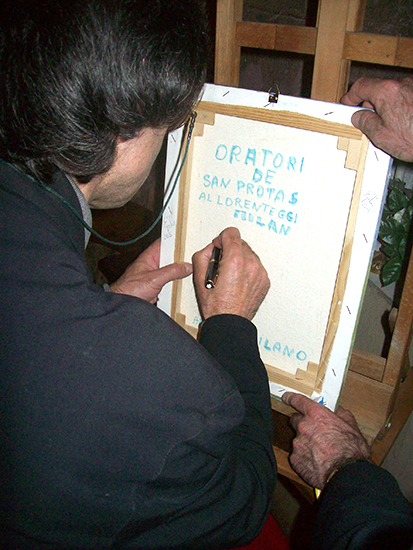 ORATORI
DE
SAN PROTAS
AL LORENTEGGI
MILAN
ILANO